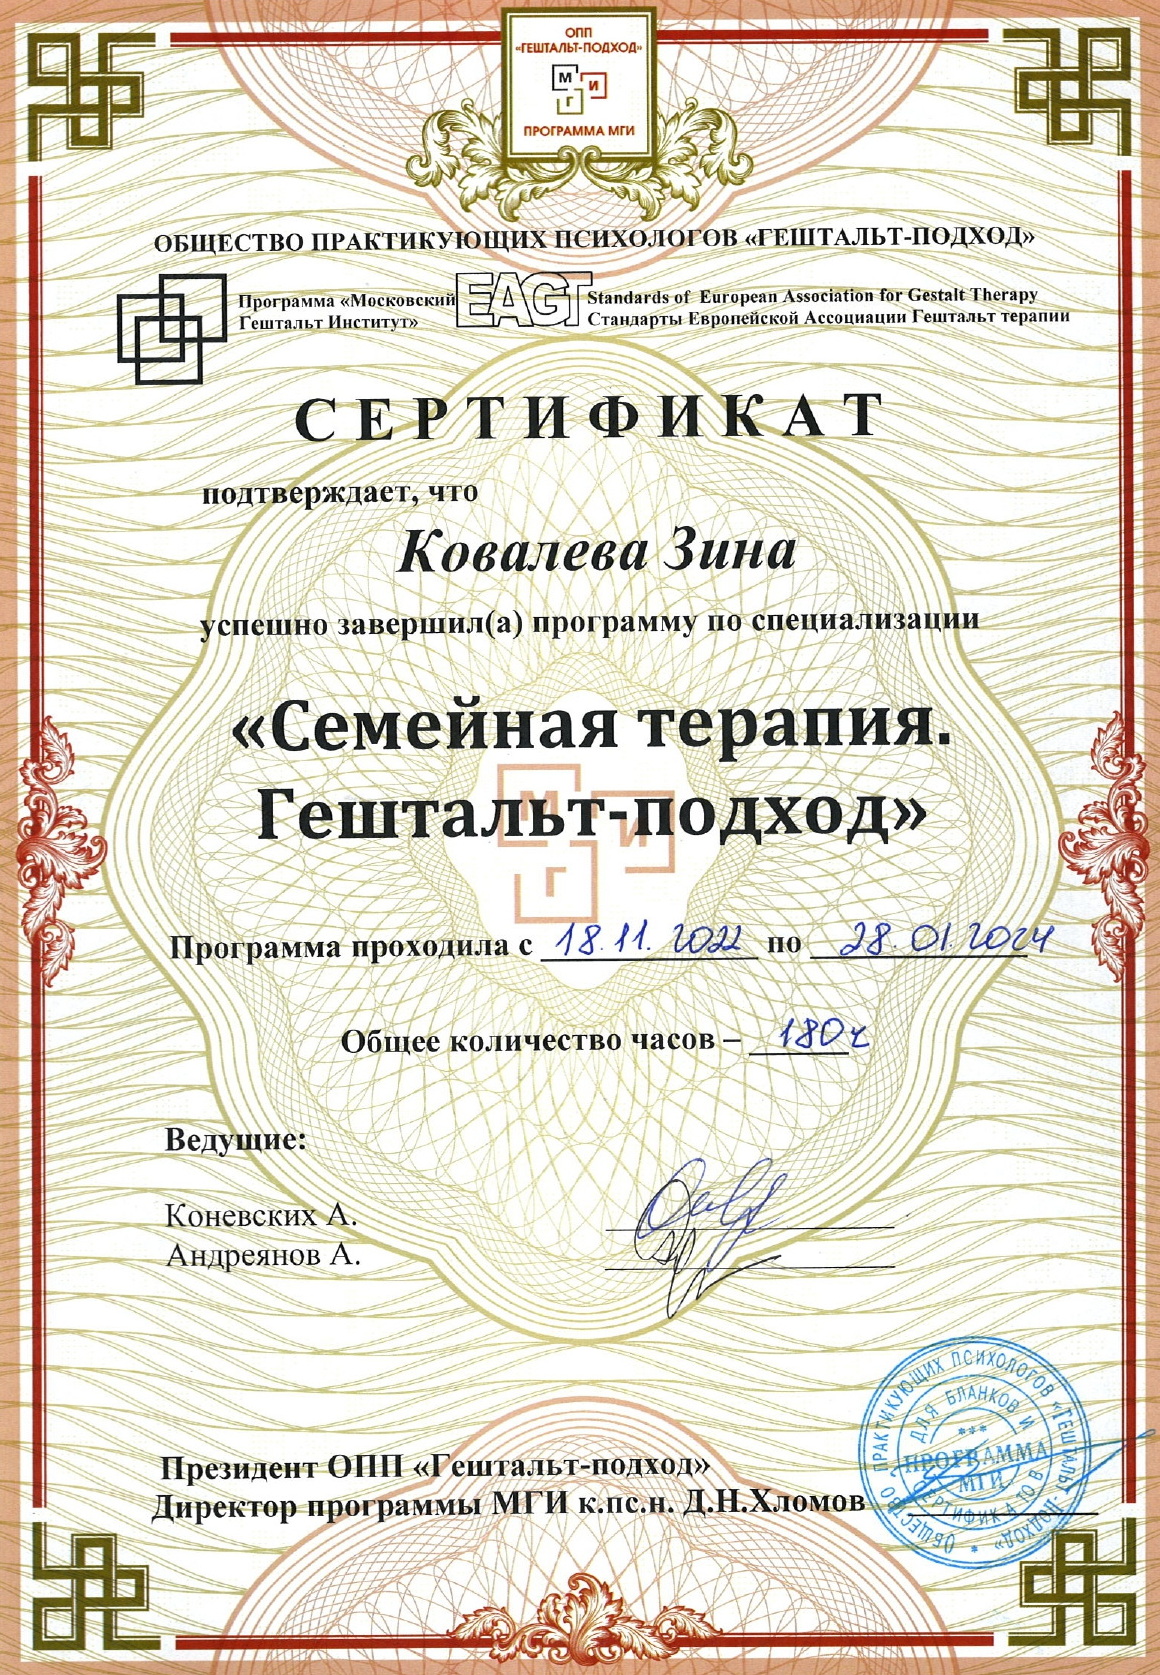 ОПП
«ГЕШТАЛЬТ-ПОДХОД»
М
И
Г
ПРОГРАММА МГИ
ОБЩЕСТВО ПРАКТИКУЮЩИХ ПСИХОЛОГОВ «ГЕШТАЛЬТ-ПОДХОД»
Программа «Московский
Гештальт Институт»
EAGT
Standards of European Association for Gestalt Therapy
Стандарты Европейской Ассоциации Гештальт терапии
СЕРТИФИКАТ
подтверждает, что
Ковалева Зина
успешно завершил(а) программу по специализации
«Семейная терапия.
Гештальт-подход»
М
И
Г
Программа проходила с 18.11.2022 по 28.01.2024
Общее количество часов – 180ч
Ведущие:
Коневских А.
Андреянов А.
Президент ОПП «Гештальт-подход»
Директор программы МГИ к.пс.н. Д.Н.Хломов
ОБЩЕСТВО ПРАКТИКУЮЩИХ ПСИХОЛОГОВ «ГЕШТАЛЬТ-ПОДХОД» *
ДЛЯ БЛАНКОВ И СЕРТИФИКАТОВ
***
ПРОГРАММА
МГИ